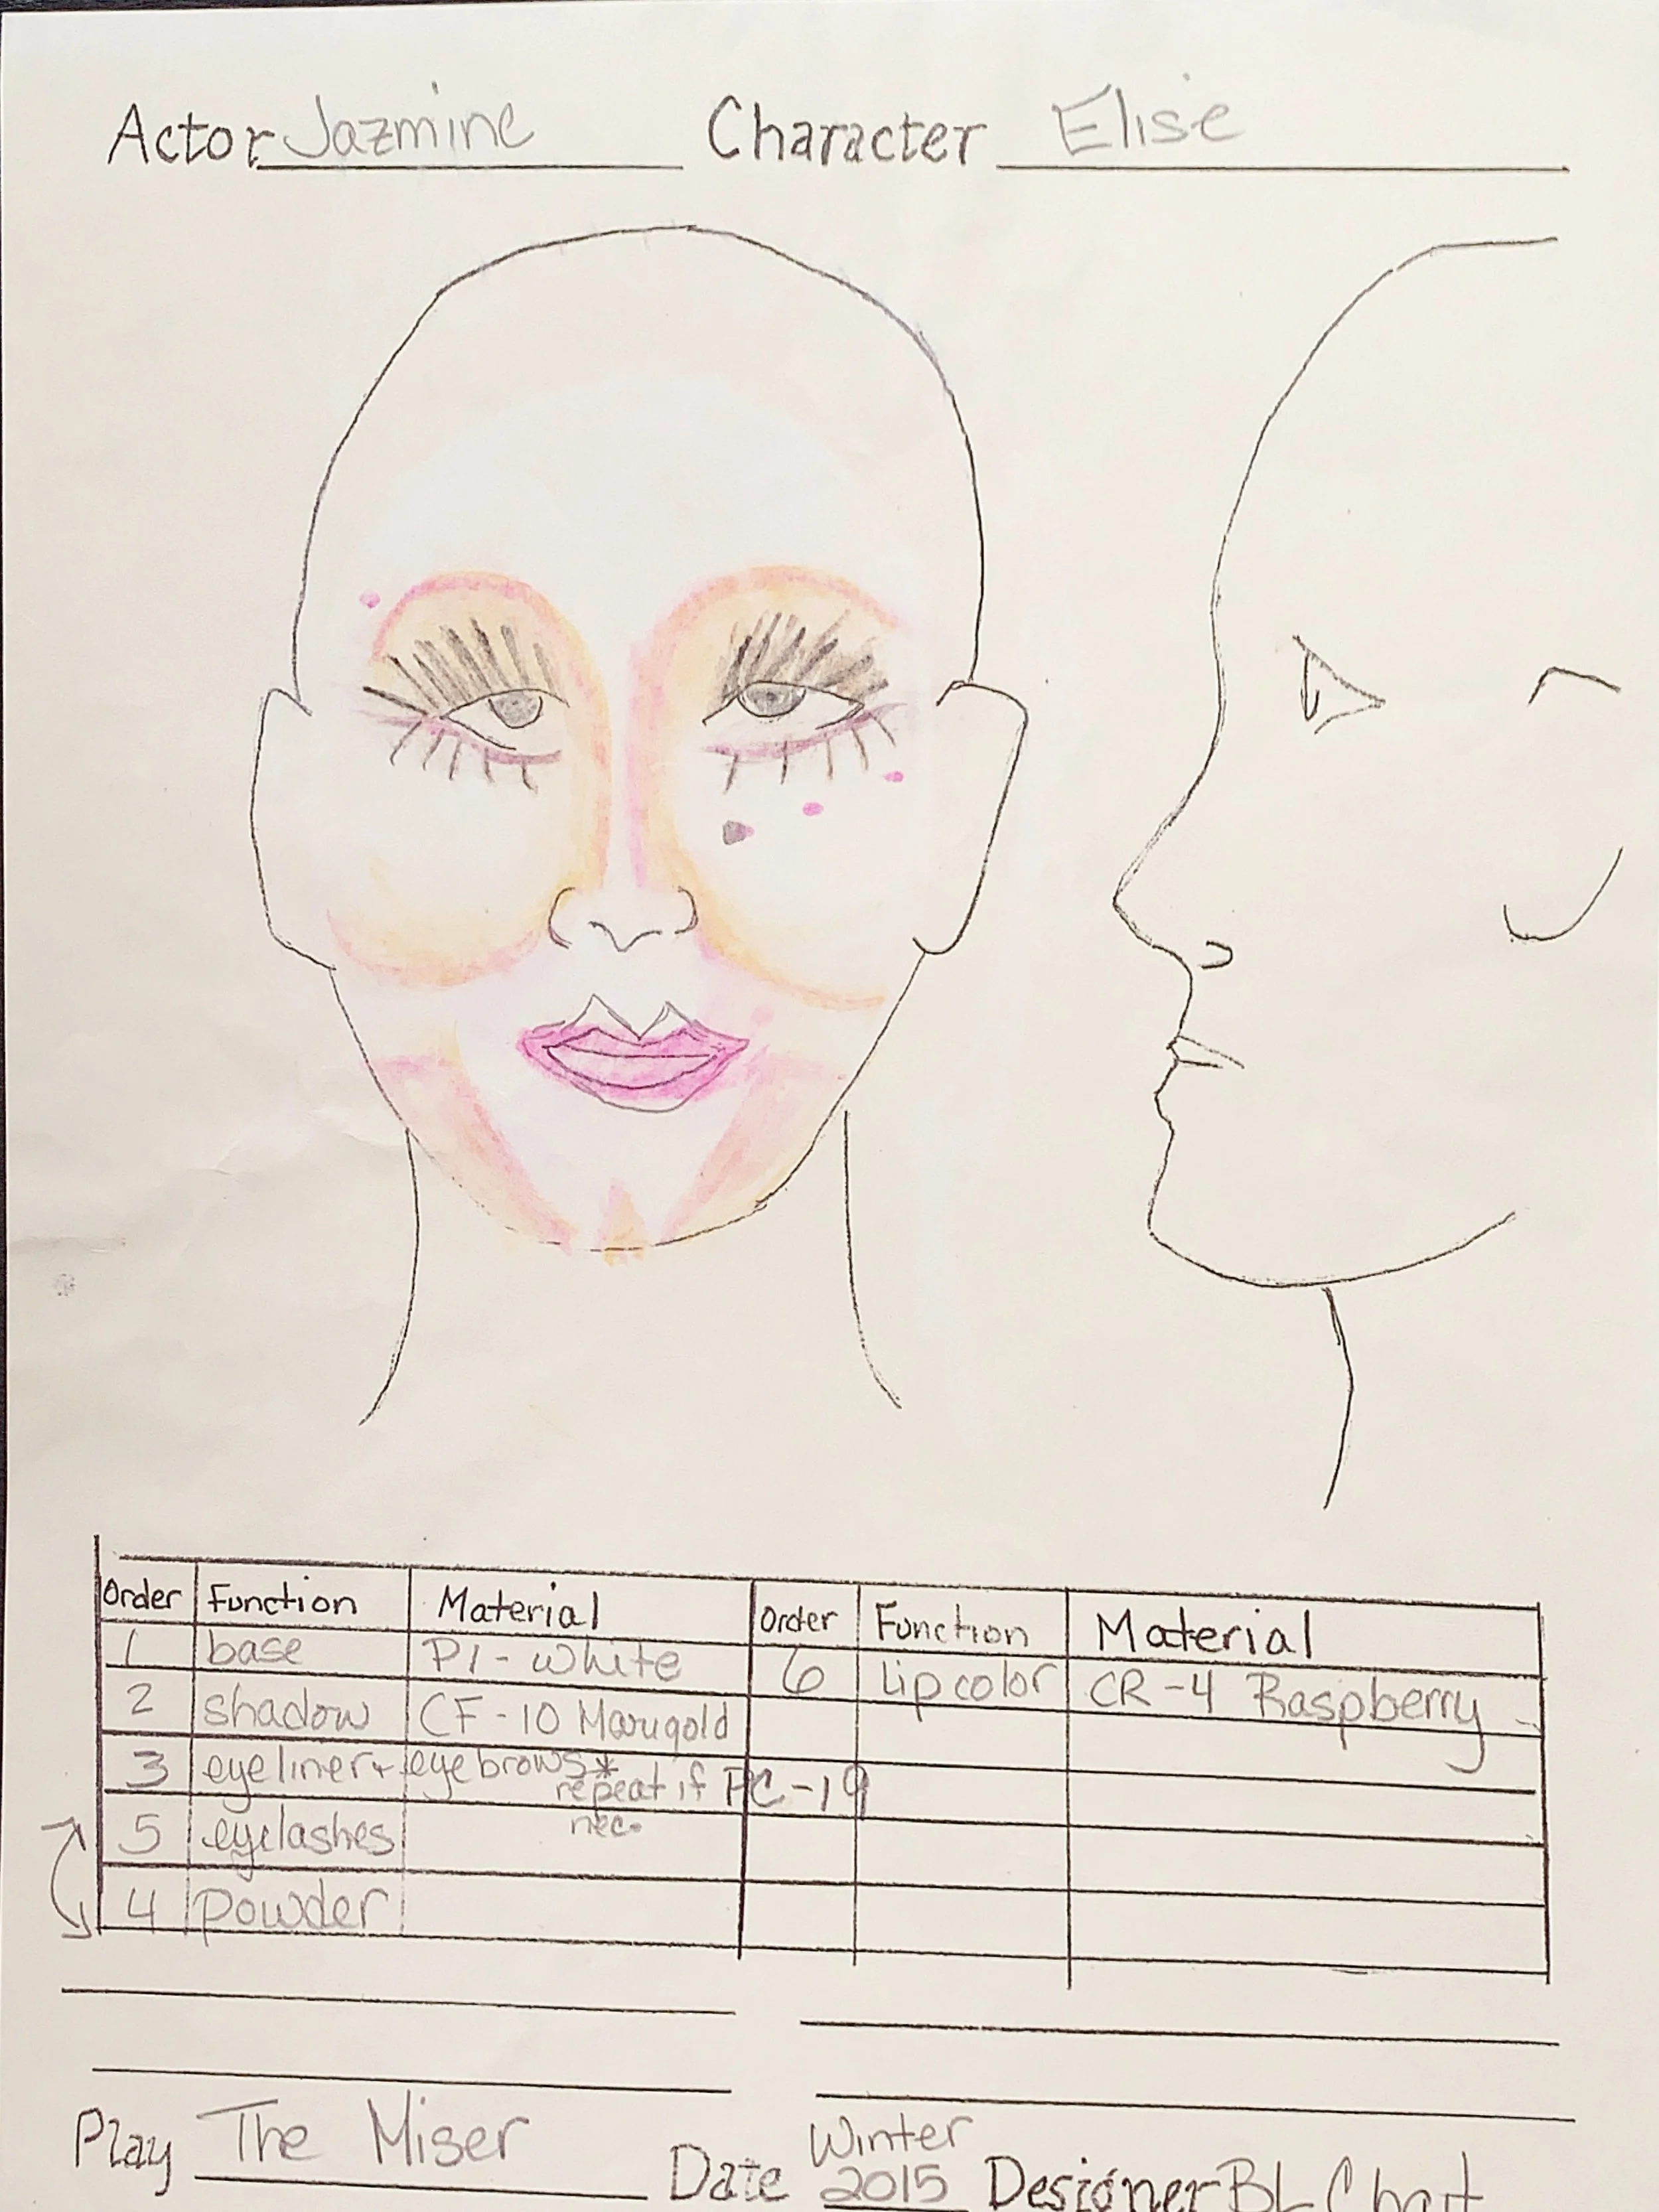 Actor Jazmine Character Elise
Order Function Material Order Function Material
1 base P1-white 6 Lip color CR-4 Raspberry
2 shadow CF-10 Marigold
3 eyeliner + eyebrows* repeat if nec. PC-19
5 eyelashes
4 Powder
Play The Miser Date Winter 2015 Designer BL Chart